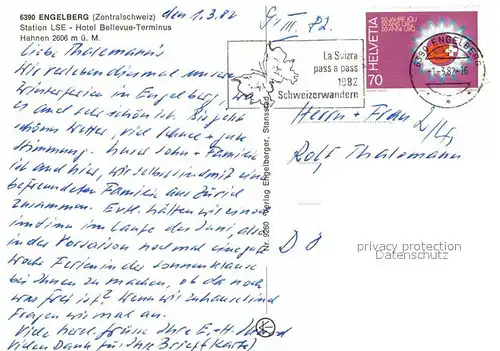 6390 ENGELBERG (Zentralschweiz)
Station LSE - Hotel Bellevue-Terminus
Hahnen 2606 m ü. M.
den 1.3.82
Liebe Thalemann's
Wir verleben diesmal unseren
Winterferien in Engelberg, wo
es auch sehr schön ist. Es gibt
schönes Wetter, viel Schnee + gute
Stimmung. Unser Sohn + Familie
ist auch hier, wir selbst sind mit einer
befreundeten Familie aus Zürich
zusammen. Evtl. hätten wir noch
im Sinn im Laufe des Juni, also
in der Vorsaison noch mal eine gute
Woche Ferien in der Sonnenklause
bei Ihnen zu machen, ob da noch
was frei ist? Wenn wir zuhause sind
fragen wir mal an.
Viele herzl. Grüsse Ihre E. + H.
vielen Dank für Ihre Brief Karte)
Nr. 9260 Verlag Engelberger, Stansstad
III. 82.
La Svizra
pass a pass
1982
Schweizerwandern
HELVETIA
70
50 JAHRE IGU
50 ANS URG
50 ANNI URG
6390 ENGELBERG
-1.-3.82-16
Herrn + Frau
Rolf Thalemann
D
privacy protection
Datenschutz